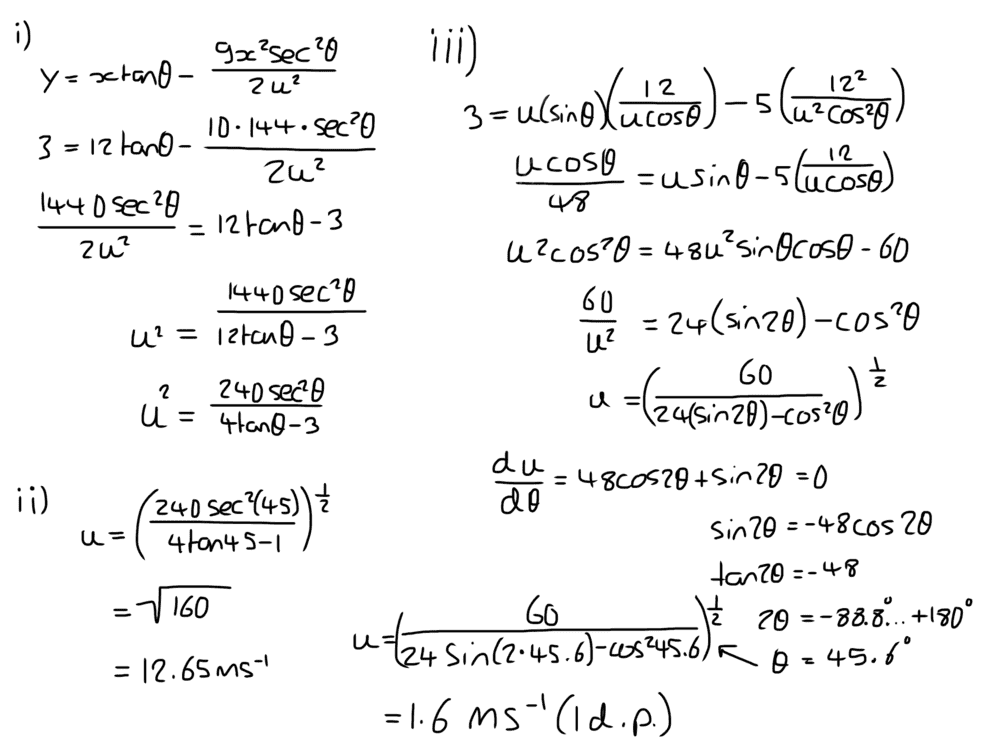 i)
y = xtanθ - 9x²sec²θ / 2u²
3 = 12tanθ - 10·144·sec²θ / 2u²
1440sec²θ / 2u² = 12tanθ - 3
u² = 1440sec²θ / 12tanθ - 3
u² = 240sec²θ / 4tanθ - 3
ii)
u = (240sec²(45) / 4tan45 - 1)^½
= √160
= 12.65ms⁻¹
iii)
3 = u(sinθ)(12 / ucosθ) - 5(12² / u²cos²θ)
ucosθ / 48 = usinθ - 5(12 / ucosθ)
u²cos²θ = 48u²sinθcosθ - 60
60 / u² = 24(sin2θ) - cos²θ
u = (60 / 24(sin2θ) - cos²θ)^½
du / dθ = 48cos2θ + sin2θ = 0
sin2θ = -48cos2θ
tan2θ = -48
2θ = -88.8°... + 180°
θ = 45.6°
u = (60 / 24Sin(2·45.6) - cos²45.6)^½
= 1.6 ms⁻¹ (1d.p.)